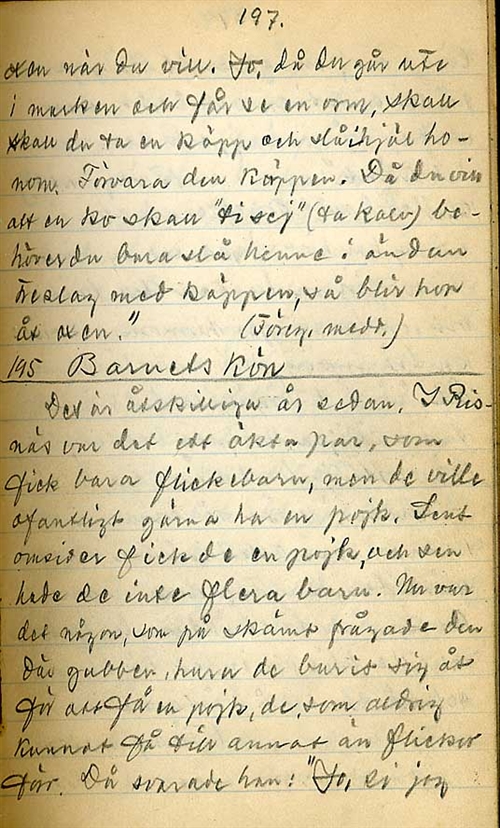 197.
oxen när du vill. Jo, då du går ute
i marken och får se en orm, skall
skall du ta en käpp och slå ihjäl ho-
nom. Förvara den käppen. Då du vill
att en ko skall "ti sej" (ta kalv) be-
höver du bara slå henne i ändan
tre slag med käppen, så blir hon
åt oxen." (Föreg. medd.)
195 Barnets kön
Det är åtskilliga år sedan. I Ris-
näs var det ett äkta par, som
fick bara flickebarn, men de ville
ofantligt gärna ha en pojk. Sent
omsider fick de en pojk, och sen
hade de inte flera barn. Nu var
det någon, som på skämt frågade den
där gubben, hura de burit sig åt
för att få en pojk, de, som aldrig
kunnat få till annat än flicker
förr. Då svarade han: "Jo, si jag